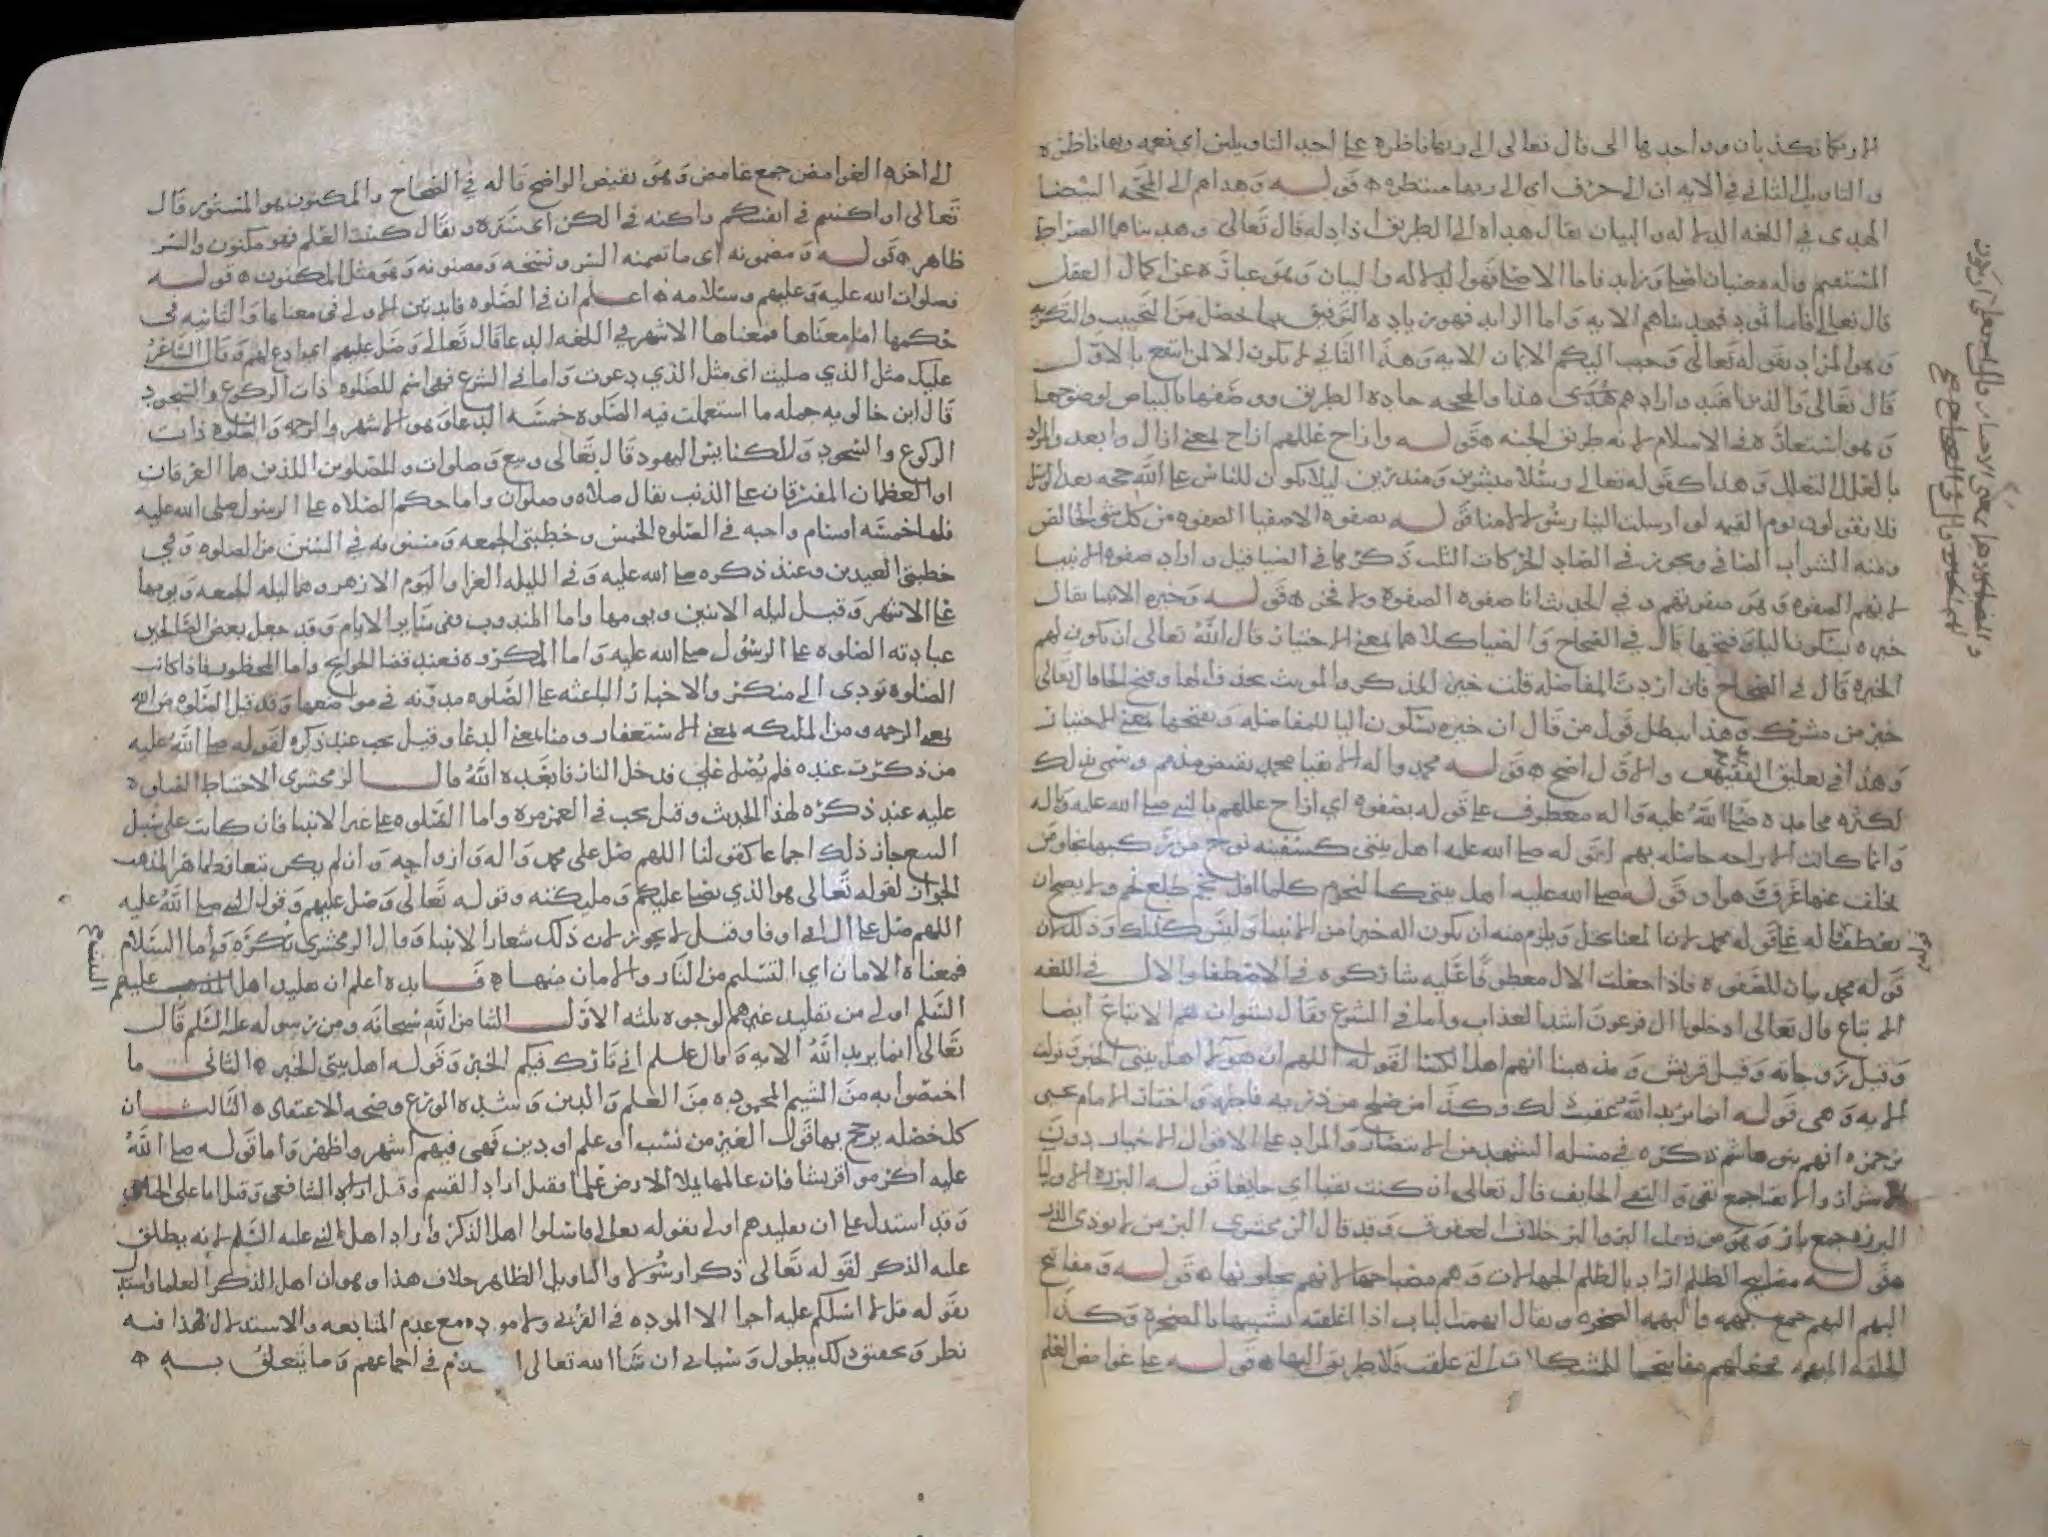 الا ربكما تكذبان وواحدها الى قال تعالى الى ربها ناظره على احد التاويلين اي نعمه ربها ناظره
والتاويل الثاني في الايه ان الى حرف اى الى ربها منتظره ه قوله وهداهم الى المحجه البيضا
الهدى في اللغه الدلاله والبيان يقال هداه الى الطريق اذا دله قال تعالى وهديناهما الصراط
المستقيم وله معنيان اصلي وزايد فاما الاصلي فهو الدلاله والبيان وهو عبارة عن اكمال العقل
قال تعالى فاما ثمود فهديناهم الايه واما الزايد فهو زيادة التوفيق بما حصل من التحبيب والتكريه
وهو المراد بقوله تعالى وحبب اليكم الايمان الايه وهذا الثاني لا يكون الا لمن انتفع بالاول
قال تعالى والذين اهتدوا زادهم هدى هذا والمحجه جادة الطريق ووصفها بالبياض لوضوحها
وهو استعارة في الاسلام لانه طريق الجنه ه قوله وازاح عللهم ازاح بمعنى ازال وابعد والمراد
بالعلل التعلل وهذا كقوله تعالى رسلا مبشرين ومنذرين ليلا يكون للناس على الله حجه بعد الرسل
فلا يقولون يوم القيمه لولا ارسلت الينا رسولا الا هنا قوله بصفوه الاصفيا الصفوه من كل شي الخالص
ومنه الشراب الصافي ويجوز في الصاد الحركات الثلث ذكرها في الضيا قيل واراد صفوه الانبيا
لانهم الصفوه وهو صفوتهم وفي الحديث انا صفوة الصفوة ولا فخر ه قوله وخيره الانبيا يقال
خيره بسكون اليا وفتحها قال في الصحاح والضيا كلاهما بمعنى الاختيار قال الله تعالى ان يكون لهم
الخيره قال في الصحاح فان اردت المفاضله قلت خير للمذكر والمونث بحذف الها وفتح الخا قال تعالى
خير من مشرك وهذا يبطل قول من قال ان خيره بسكون اليا للمفاضله وبفتحها بمعنى الاختيار
وهذا في تعليق الفقيه والاول اصح ه قوله محمد واله الاتقيا محمد نقيض مذمم وسمي بذلك
لكثرة محامده صلى الله عليه واله معطوف على قوله بصفوه اي ازاح عللهم بالنبي صلى الله عليه واله
وانما كانت الازاحه حاصله بهم لقوله صلى الله عليه اهل بيتي كسفينه نوح من ركبها نجا ومن
تخلف عنها غرق وهوا وقوله صلى الله عليه اهل بيتي كالنجوم كلما افل نجم طلع نجم ولا يصح ان
يعطف اله على قوله محمد لان المعنا يختل ويلزم منه ان يكون اله خيرا من الانبيا وليس كذلك وذلك لان
قوله محمد بيان للصفوه فاذا جعلت الال معطوفا عليه شاركوه في الاصطفا والال في اللغه
الاتباع قال تعالى ادخلوا ال فرعون اشد العذاب واما في الشرع فقال نشوان هم الاتباع ايضا
وقيل زوجاته وقيل قريش ومذهبنا انهم اهل الكسا لقوله اللهم ان هولا اهل بيتي الخبر ونزلت
الايه وهي قوله انما يريد الله عقيب ذلك وكذا من صلح من ذريه فاطمه واختار الامام يحيى
بن حمزه انهم بني هاشم ذكره في مسله التشهد من الانتصار والمراد على الاقوال الاخيار دون
الاشرار والاتقيا جمع تقي والتقي الخايف قال تعالى ان كنت تقيا اي خايفا قوله البرره الاوليا
البرره جمع بار وهو من فعل البر والبر خلاف العقوق وقد قال الزمخشري البر من لا يوذي الذر
ه قوله مصابيح الظلم اراد بالظلم الجهالات وهم مصباحها لانهم يجلونها ه قوله ومفاتح
البهم البهم جمع بهمه والبهمه الصخره ويقال ابهمت الباب اذا اغلقته تشبيها بالصخرة وكذا
الحلقه المبهمه فجعلهم مفاتيحا للمشكلات التي غلقت فلا طريق اليها ه قوله على غوامض العلم
الى اخره الغوامض جمع غامض وهو نقيض الواضح قاله في الصحاح والمكنون هو المستور قال
تعالى او اكننتم في انفسكم واكنه في الكن اى ستره ويقال كننت العلم فهو مكنون والسر
ظاهر ه قوله ومضمونه اى ما تضمنه السر ونتيجه ومصنونه وهو مثل المكنون ه قوله
فصلوات الله عليه وعليهم وسلامه ه اعلم ان في الصلوه فايدتين الاولى في معناها والثانيه في
حكمها اما معناها فمعناها الاشهر في اللغه الدعا قال تعالى وصل عليهم اي وادع لهم وقال الشاعر
عليك مثل الذي صليت اى مثل الذي دعوت واما في الشرع فهي اسم للصلوه ذات الركوع والسجود
قال ابن خالويه جمله ما استعملت فيه الصلوة خمسة الدعا وهو الاشهر والرحمه والصلوة ذات
الركوع والسجود والكنايس اليهود قال تعالى وبيع وصلوات والمصلوين اللذين هما العرقان
او العظمان المفترقان على الذنب يقال صلاه وصلوان واما حكم الصلاه على الرسول صلى الله عليه
فلها خمسه اقسام واجبه في الصلوة الخمس وخطبتي الجمعه ومسنونه في السنن من الصلوه وفي
خطبتي العيدين وعند ذكره صلى الله عليه وفي الليله الغرا واليوم الازهر وهما ليله الجمعه ويومها
على الاشهر وقيل ليله الاثنين ويومها واما المندوب ففي ساير الايام وقد جعل بعض الصالحين
عبادته الصلوه على الرسول صلى الله عليه واما المكروه فعند قضا الحوايج واما المحظور فاذا كانت
الصلوة تودي الى منكر والاخبار الباعثه على الصلوه مدونه في مواضعها وقد قيل الصلوه من الله
بمعنى الرحمه ومن الملكه بمعنى الاستغفار ومنا بمعنى الدعا وقيل يجب عند ذكره لقوله صلى الله عليه
من ذكرت عنده فلم يصل علي فدخل النار فابعده الله قال الزمخشرى الاحتياط الصلوه
عليه عند ذكره لهذا الحديث وقيل يجب في العمر مرة واما الصلوه على غير الانبيا فان كانت على سبيل
التبع جاز ذلك اجماعا كقولنا اللهم صل على محمد واله وازواجه وان لم يكن تبعا فظاهر المذهب
الجواز لقوله تعالى هو الذي يصلي عليكم ومليكته وقوله تعالى وصل عليهم وقول النبي صلى الله عليه
اللهم صل على ال ابي اوفا وقيل لا يجوز لان ذلك شعار الانبيا وقال الزمخشرى يكره واما السلام
فمعناه الامان اي التسليم من النار والامان منها ه فايده اعلم ان تقليد اهل المذهب عليهم
السلم اولى من تقليد غيرهم لوجوه ثلثه الاول الثنا من الله سبحانه ومن رسوله عليه السلم قال
تعالى انما يريد الله الايه وقال علم اني تارك فيكم الخبر وقوله اهل بيتي الخبر ه الثاني ما
اختصوا به من الشيم المحموده من العلم والدين وشده الورع وصحه الاعتقاد ه الثالث ان
كل خصله يرجح بها قول الغير من نسب او علم او دين فهي فيهم اشهر واظهر واما قوله صلى الله
عليه اكرموا قريشا فان عالمها يملا الارض علما فقيل اراد القسم وقيل اراد الشافعي وقيل اما على
وقد استدل على ان تقليدهم اولى بقوله تعالى فاسلوا اهل الذكر واراد اهل النبي عليه السلم لانه يطلق
عليه الذكر لقوله تعالى ذكرا رسولا والتاويل الظاهر خلاف هذا وهو ان اهل الذكر العلما واستدل
بقوله قل لا اسلكم عليه اجرا الا الموده في القربى ولا موده مع عدم المتابعه والاستدلال بهذا فيه
نظر وتحقيق ذلك يطول وسياتي ان شا الله تعالى في اجماعهم وما يتعلق به ه